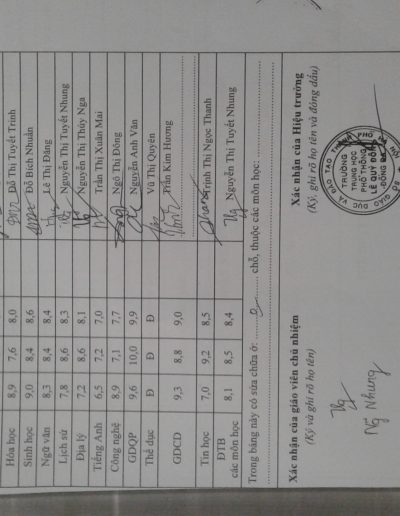 Hóa học 8,9 7,6 8,0 Đỗ Thị Tuyết Trinh
Sinh học 9,0 8,4 8,6 Đỗ Bích Nhuần
Ngữ văn 8,3 8,4 8,4 Lê Thị Đăng
Lịch sử 7,8 8,6 8,3 Nguyễn Thị Tuyết Nhung
Địa lý 7,2 8,6 8,1 Nguyễn Thị Thúy Nga
Tiếng Anh 6,5 7,2 7,0 Trần Thị Xuân Mai
Công nghệ 8,9 7,1 7,7 Ngô Thị Đông
GDQP 9,6 10,0 9,9 Nguyễn Anh Vân
Thể dục Đ Đ Đ Vũ Thị Quyên
GDCD 9,3 8,8 9,0 Trần Kim Hương
Tin học 7,0 9,2 8,5 Trịnh Thị Ngọc Thanh
ĐTB các môn học 8,1 8,5 8,4 Nguyễn Thị Tuyết Nhung
Trong bảng này có sửa chữa ở: 0 chỗ, thuộc các môn học:
Xác nhận của giáo viên chủ nhiệm
(Ký và ghi rõ họ tên)
Ng Nhung
Xác nhận của Hiệu trưởng
(Ký, ghi rõ họ tên và đóng dấu)
GIÁO DỤC VÀ ĐÀO TẠO THÀNH PHỐ HÀ NỘI
TRƯỜNG
TRUNG HỌC
PHỔ THÔNG
LÊ QUÝ ĐÔN